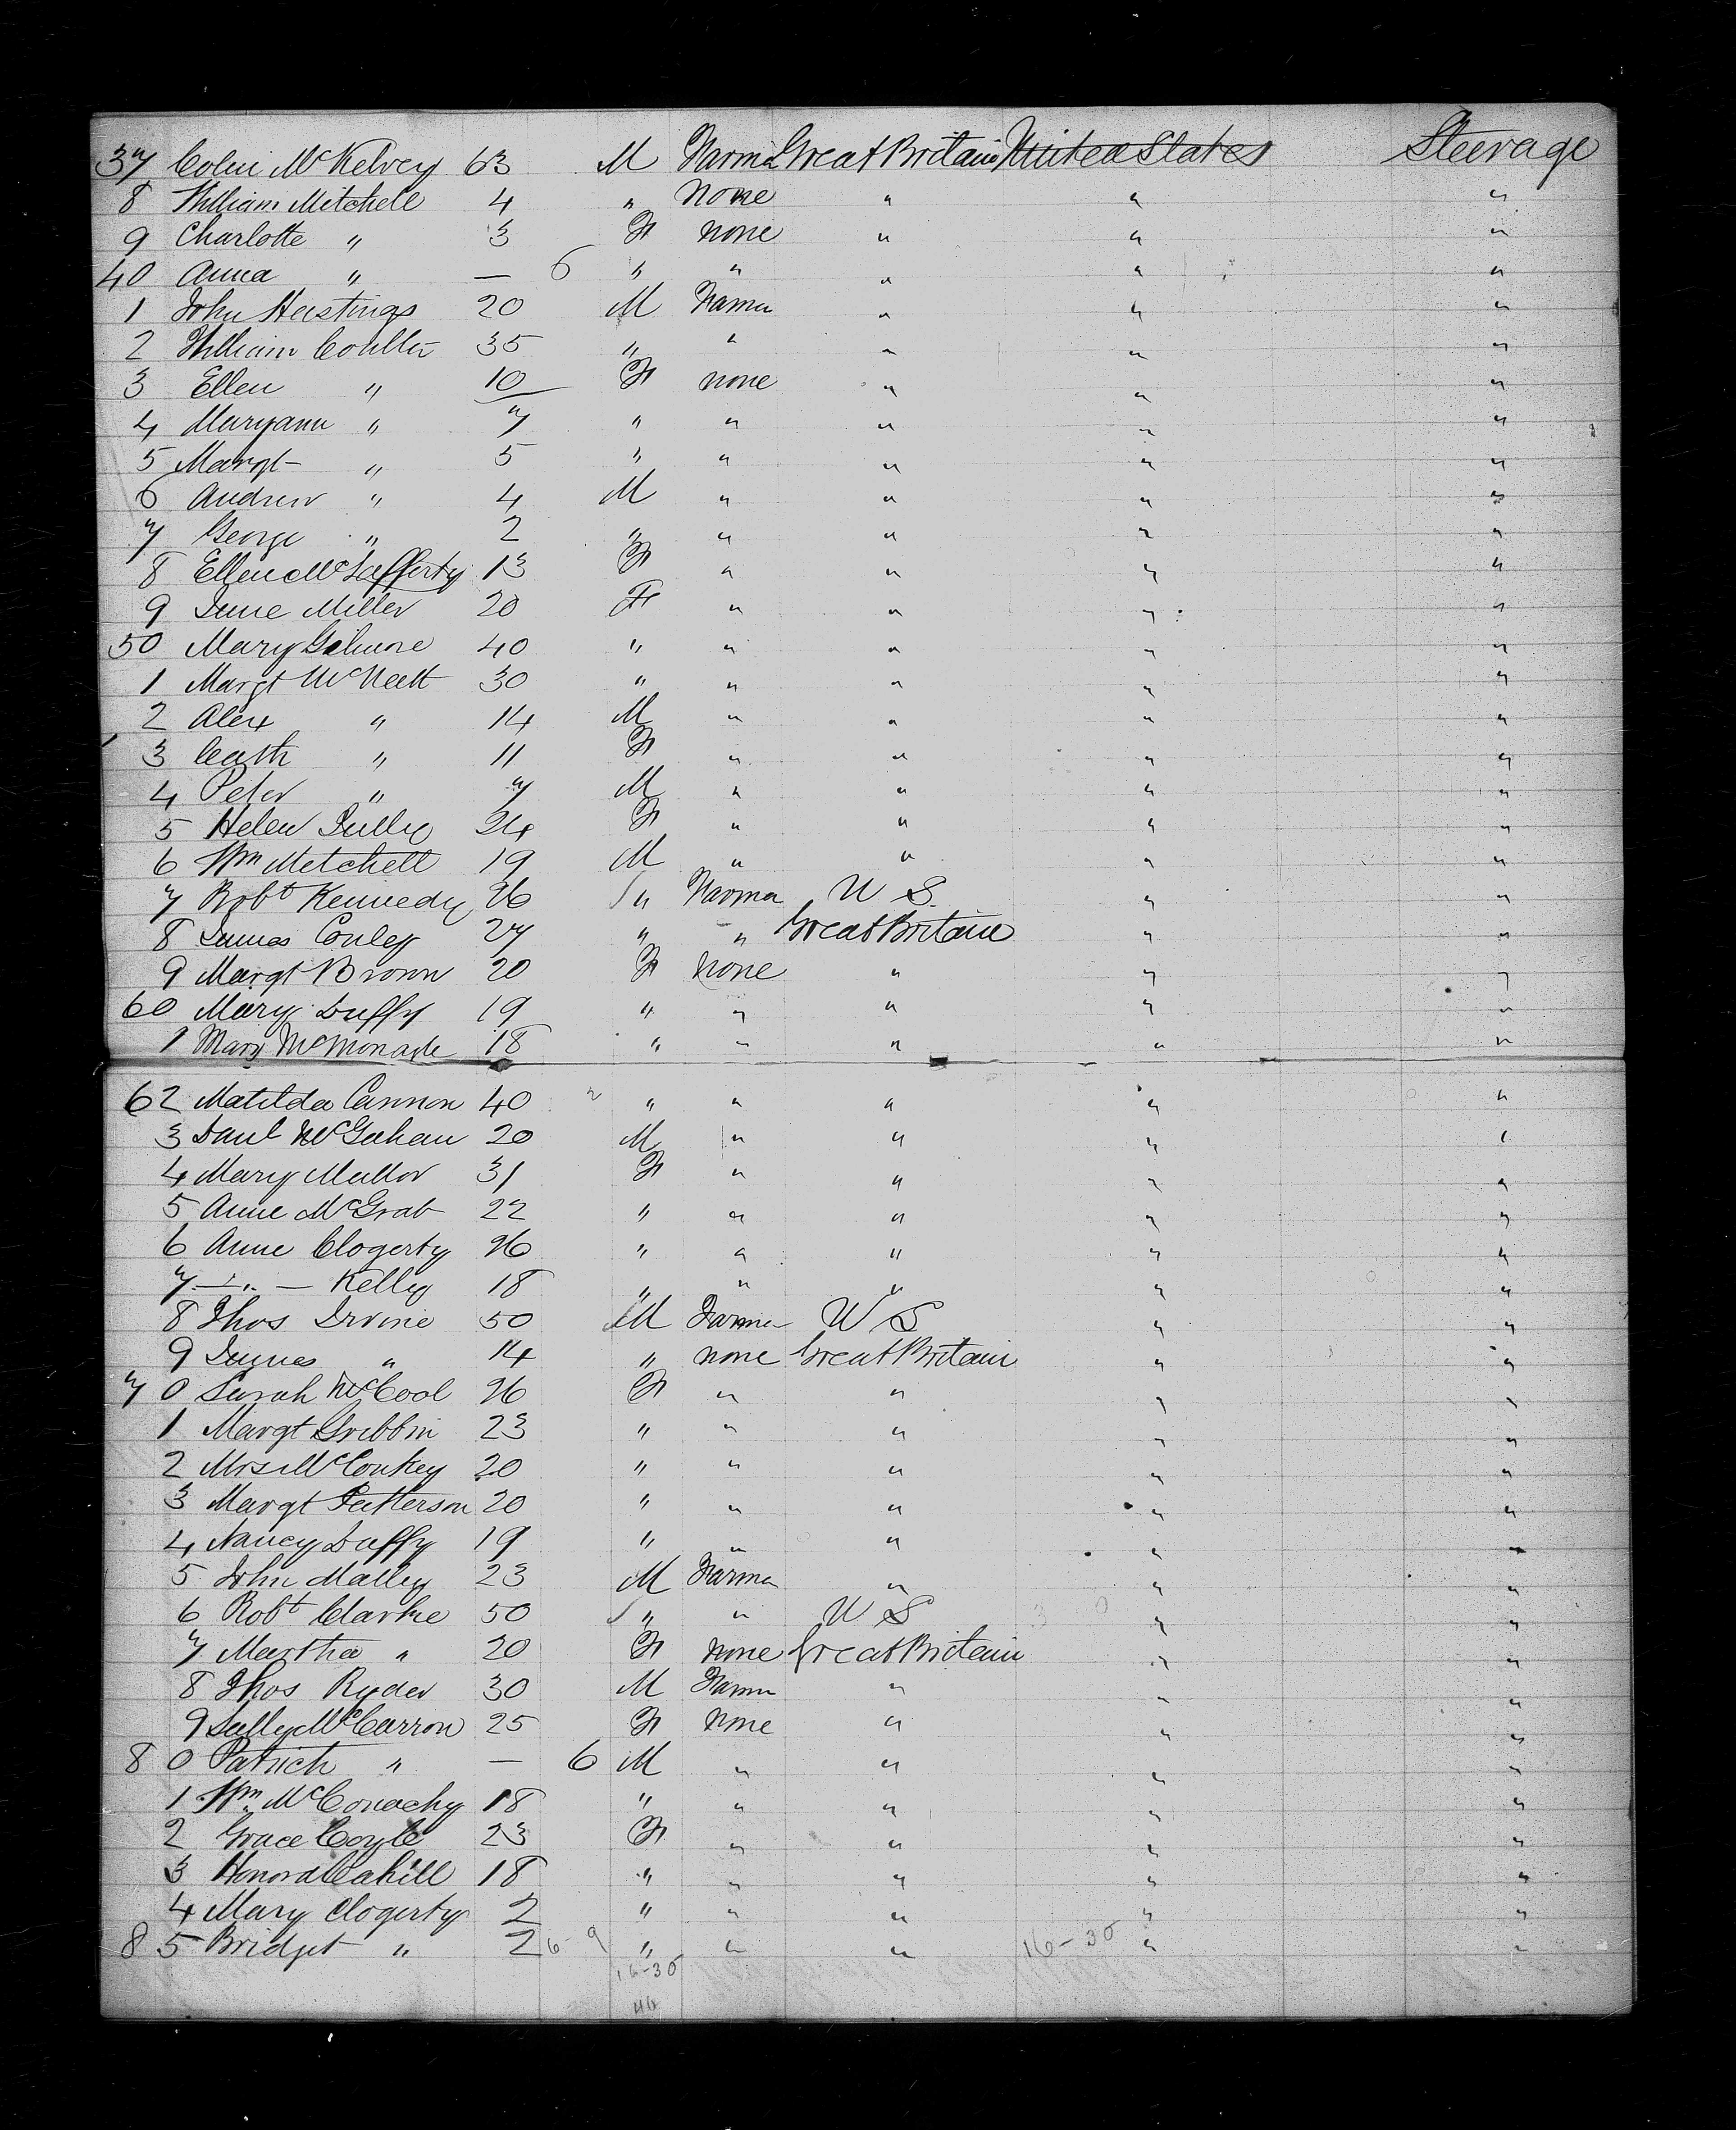 37 Colin McKelvey 63 M Farmer Great Britain United States Steerage
8 William Mitchell 4 " None " " "
9 Charlotte " 3 F none " " "
40 Anna " — 6 " " " " "
1 John Hastings 20 M Farmer " " "
2 William Coulter 35 " " " " "
3 Ellen " 10 F none " " "
4 Maryann " 7 " " " " "
5 Margt " 5 " " " " "
6 Andrew " 4 M " " " "
7 George " 2 " " " " "
8 Ellen McLafferty 13 F " " " "
9 Jane Miller 20 F " " " "
50 Mary Gilmore 40 " " " " "
1 Margt 30 " " " " "
2 Alex " 14 M " " " "
3 Cath " 11 F " " " "
4 Peter " 7 M " " " "
5 Helen 24 F " " " "
6 Wm Mitchell 19 M " " " "
7 Robt Kennedy 26 " Farmer U S " "
8 James Conley 27 " " Great Britain " "
9 Margt Brown 20 F none " " "
60 Mary Duffy 19 " " " " "
1 Mary McMonagle 18 " " " " "
62 Matilda Cannon 40 " " " " "
3 Danl McGahan 20 M " " " "
4 Mary 31 F " " " "
5 Anne McGrat 22 " " " " "
6 Anne Clogerty 26 " " " " "
7 — " — Kelly 18 " " " " "
8 Thos Irvine 50 M Farmer U S " "
9 James " 14 " none Great Britain " "
70 Sarah McCool 26 F " " " "
1 Margt Gribbin 23 " " " " "
2 Mrs McConkey 20 " " " " "
3 Margt Patterson 20 " " " " "
4 Nancy Duffy 19 " " " " "
5 John Malley 23 M Farmer " " "
6 Robt Clarke 50 " " U S " "
7 Martha " 20 F none Great Britain " "
8 Thos Ryder 30 M Farmer " " "
9 Sally McCarron 25 F None " " "
80 Patrick " — 6 M " " " "
1 Wm McConachy 18 " " " " "
2 Grace Coyle 23 F " " " "
3 Honora Cahill 18 " " " " "
4 Mary Clogerty 2 " " " " "
85 Bridget " 2 6-9 " " " 16-30 " "
16-30
46